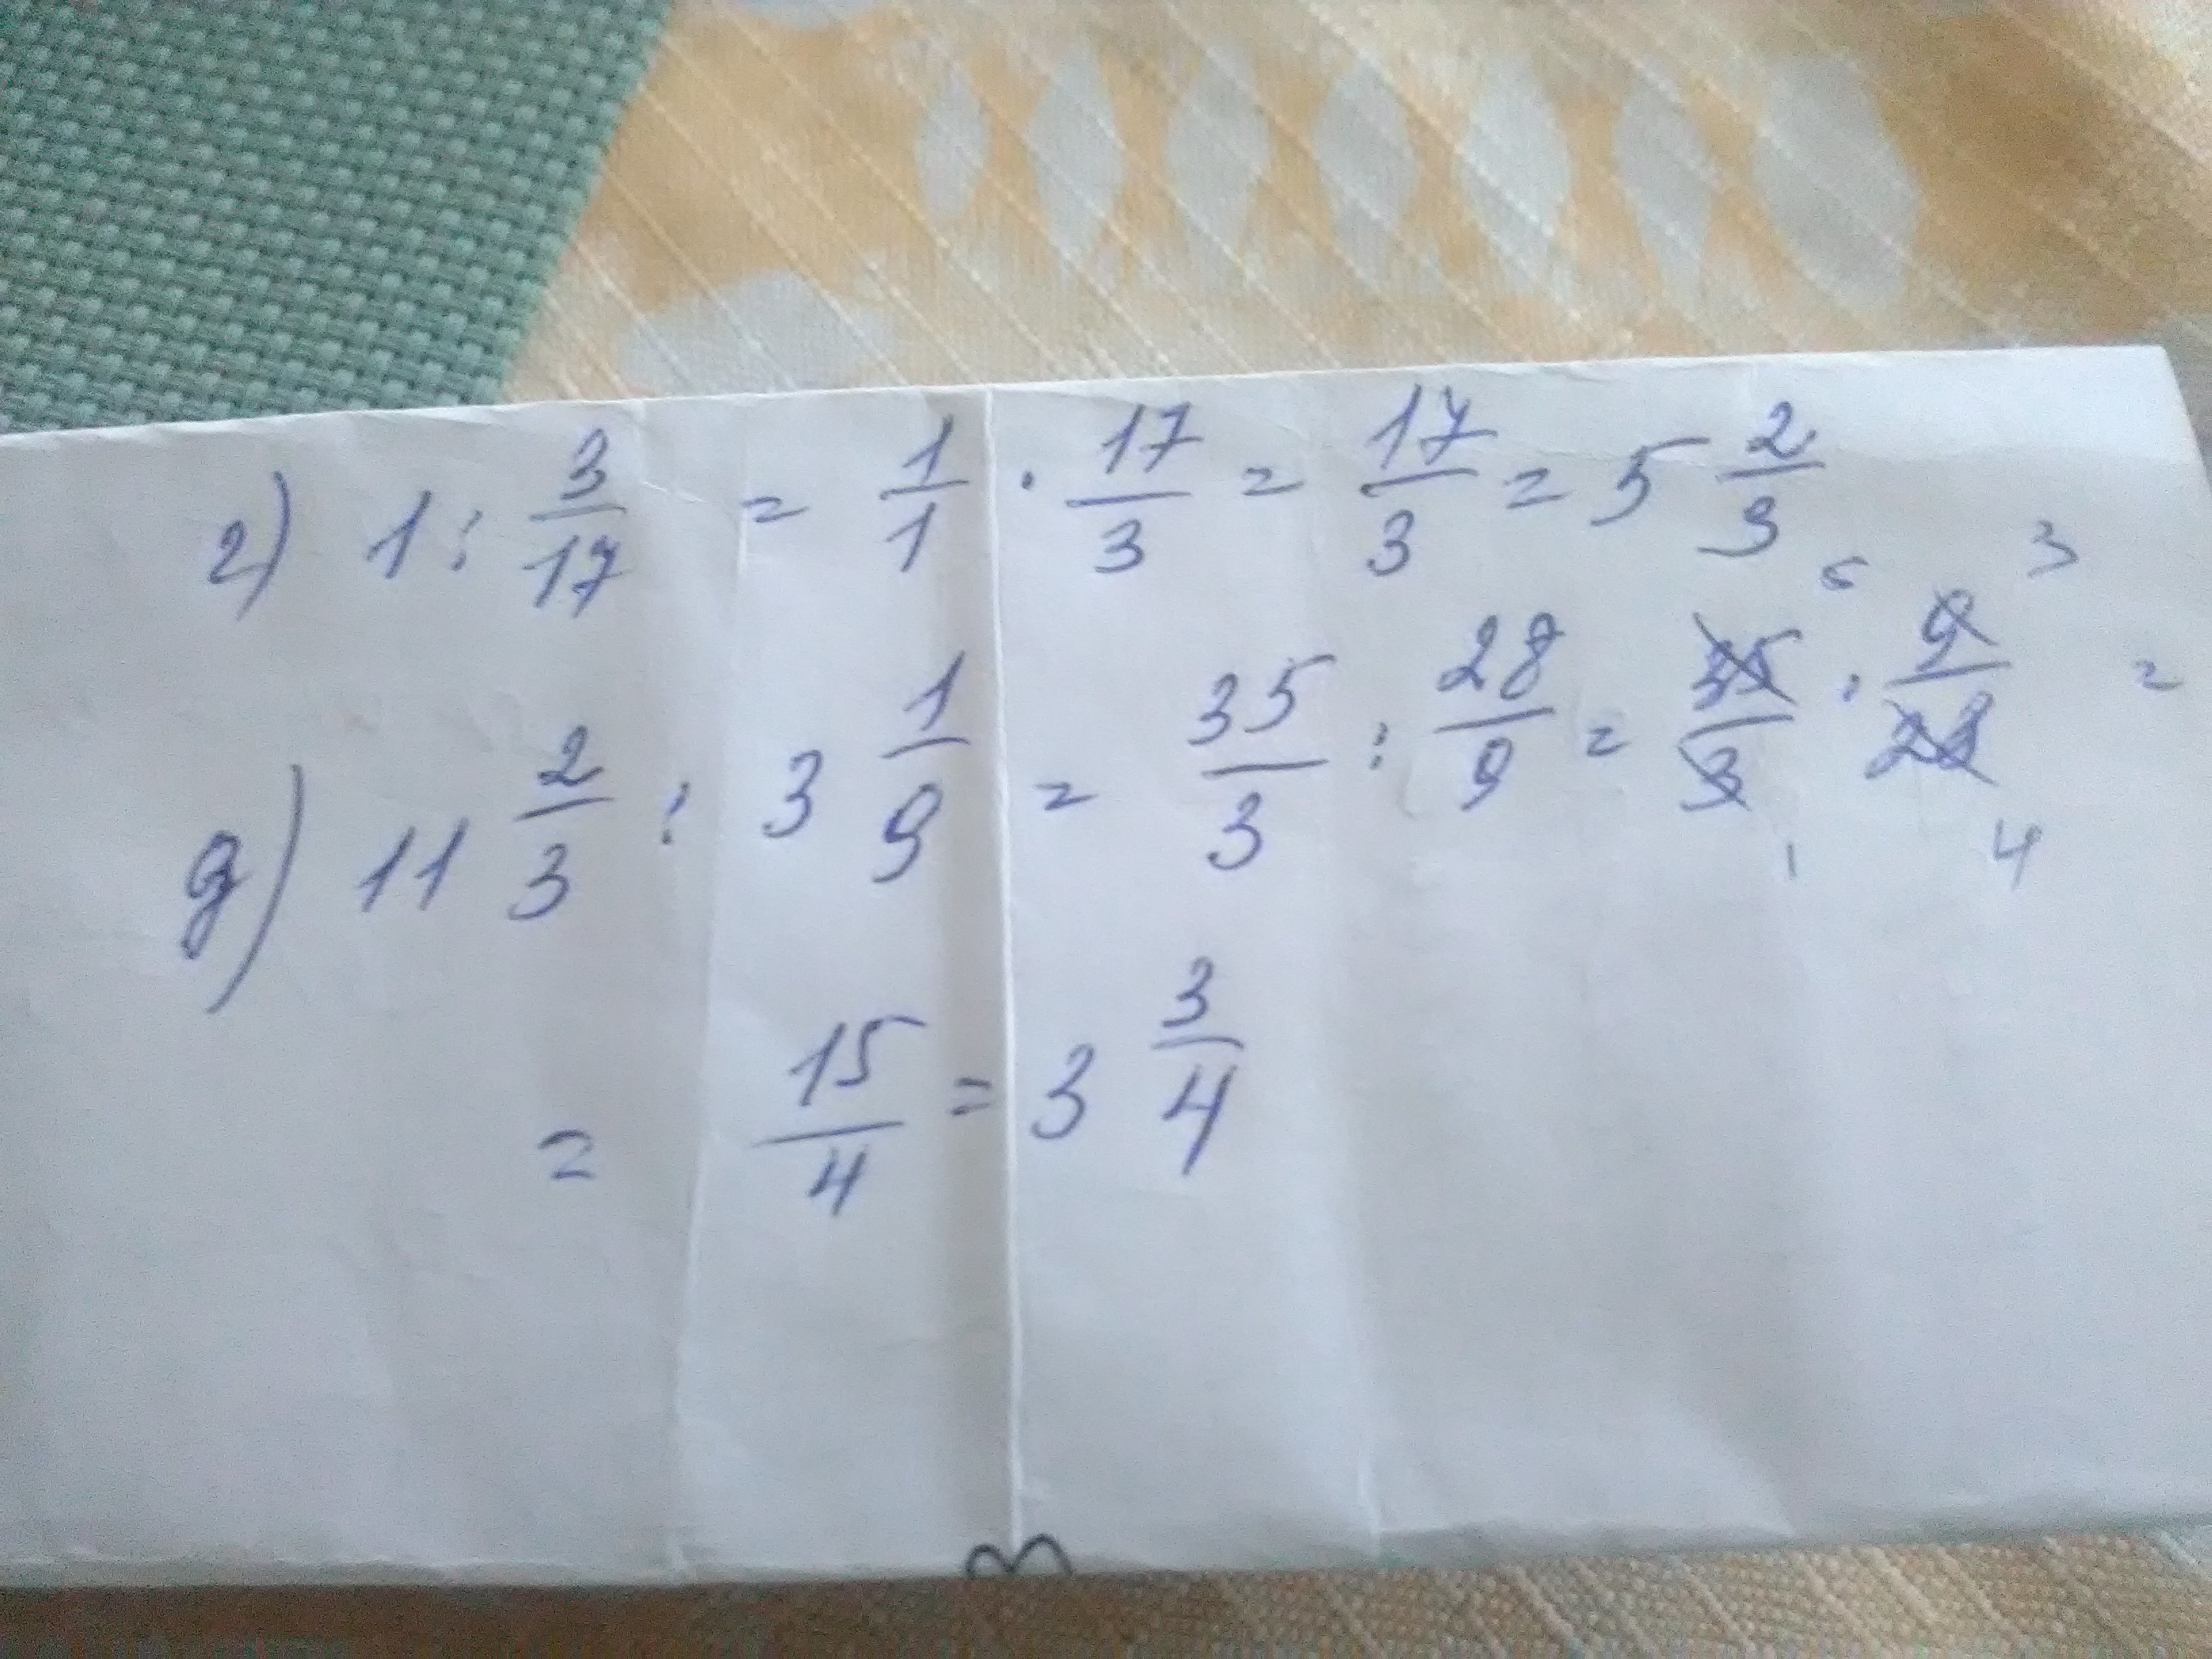 г) 1 : 3/17 = 1/1 · 17/3 = 17/3 = 5 2/3
д) 11 2/3 : 3 1/9 = 35/3 : 28/9 = 35/3 5 1 · 9/28 3 4 =
= 15/4 = 3 3/4